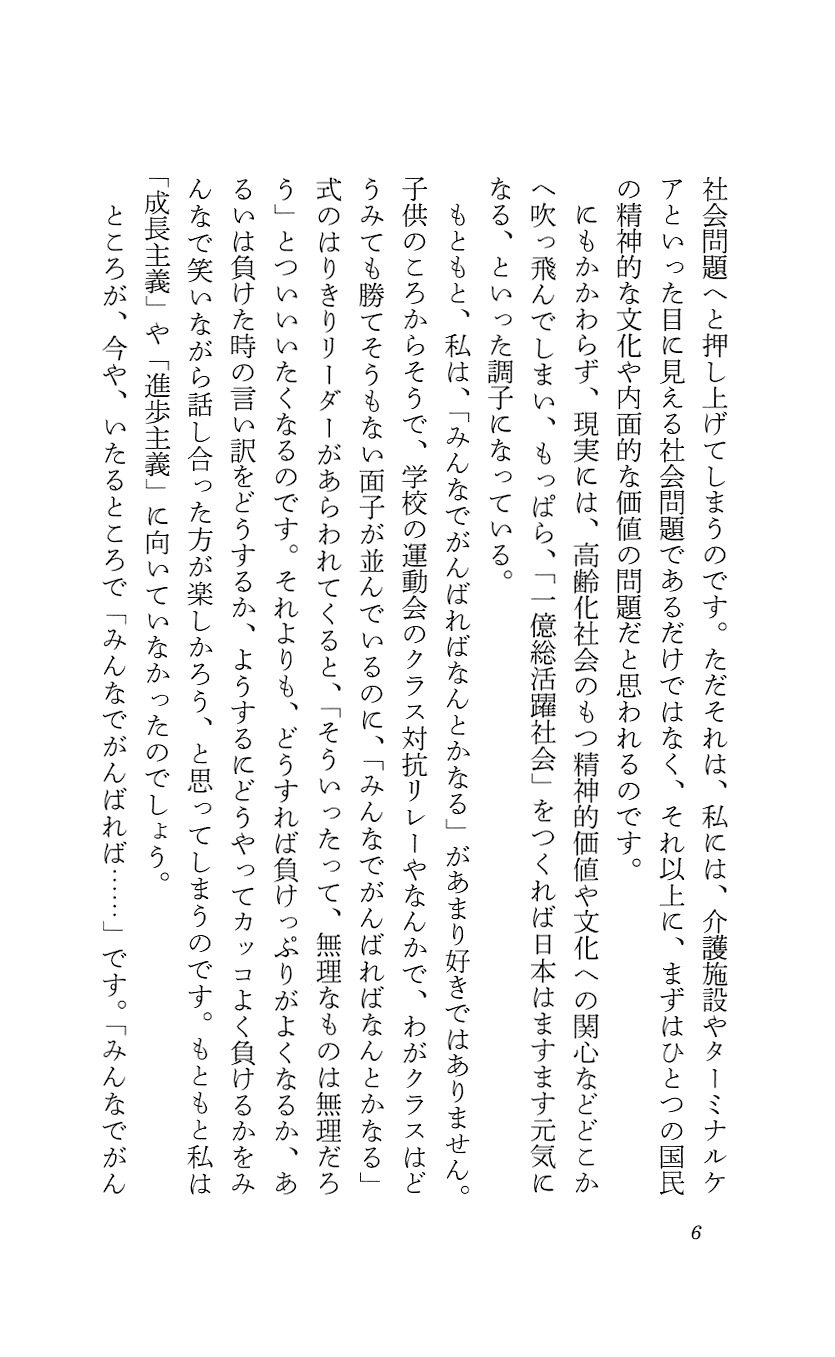 社会問題へと押し上げてしまうのです。ただそれは、私には、介護施設やターミナルケ
アといった目に見える社会問題であるだけではなく、それ以上に、まずはひとつの国民
の精神的な文化や内面的な価値の問題だと思われるのです。
　にもかかわらず、現実には、高齢化社会のもつ精神的価値や文化への関心などどこか
へ吹っ飛んでしまい、もっぱら、「一億総活躍社会」をつくれば日本はますます元気に
なる、といった調子になっている。
　もともと、私は、「みんなでがんばればなんとかなる」があまり好きではありません。
子供のころからそうで、学校の運動会のクラス対抗リレーやなんかで、わがクラスはど
うみても勝てそうもない面子が並んでいるのに、「みんなでがんばればなんとかなる」
式のはりきりリーダーがあらわれてくると、「そういったって、無理なものは無理だろ
う」とついいいたくなるのです。それよりも、どうすれば負けっぷりがよくなるか、あ
るいは負けた時の言い訳をどうするか、ようするにどうやってカッコよく負けるかをみ
んなで笑いながら話し合った方が楽しかろう、と思ってしまうのです。もともと私は
「成長主義」や「進歩主義」に向いていなかったのでしょう。
　ところが、今や、いたるところで「みんなでがんばれば……」です。「みんなでがん
6